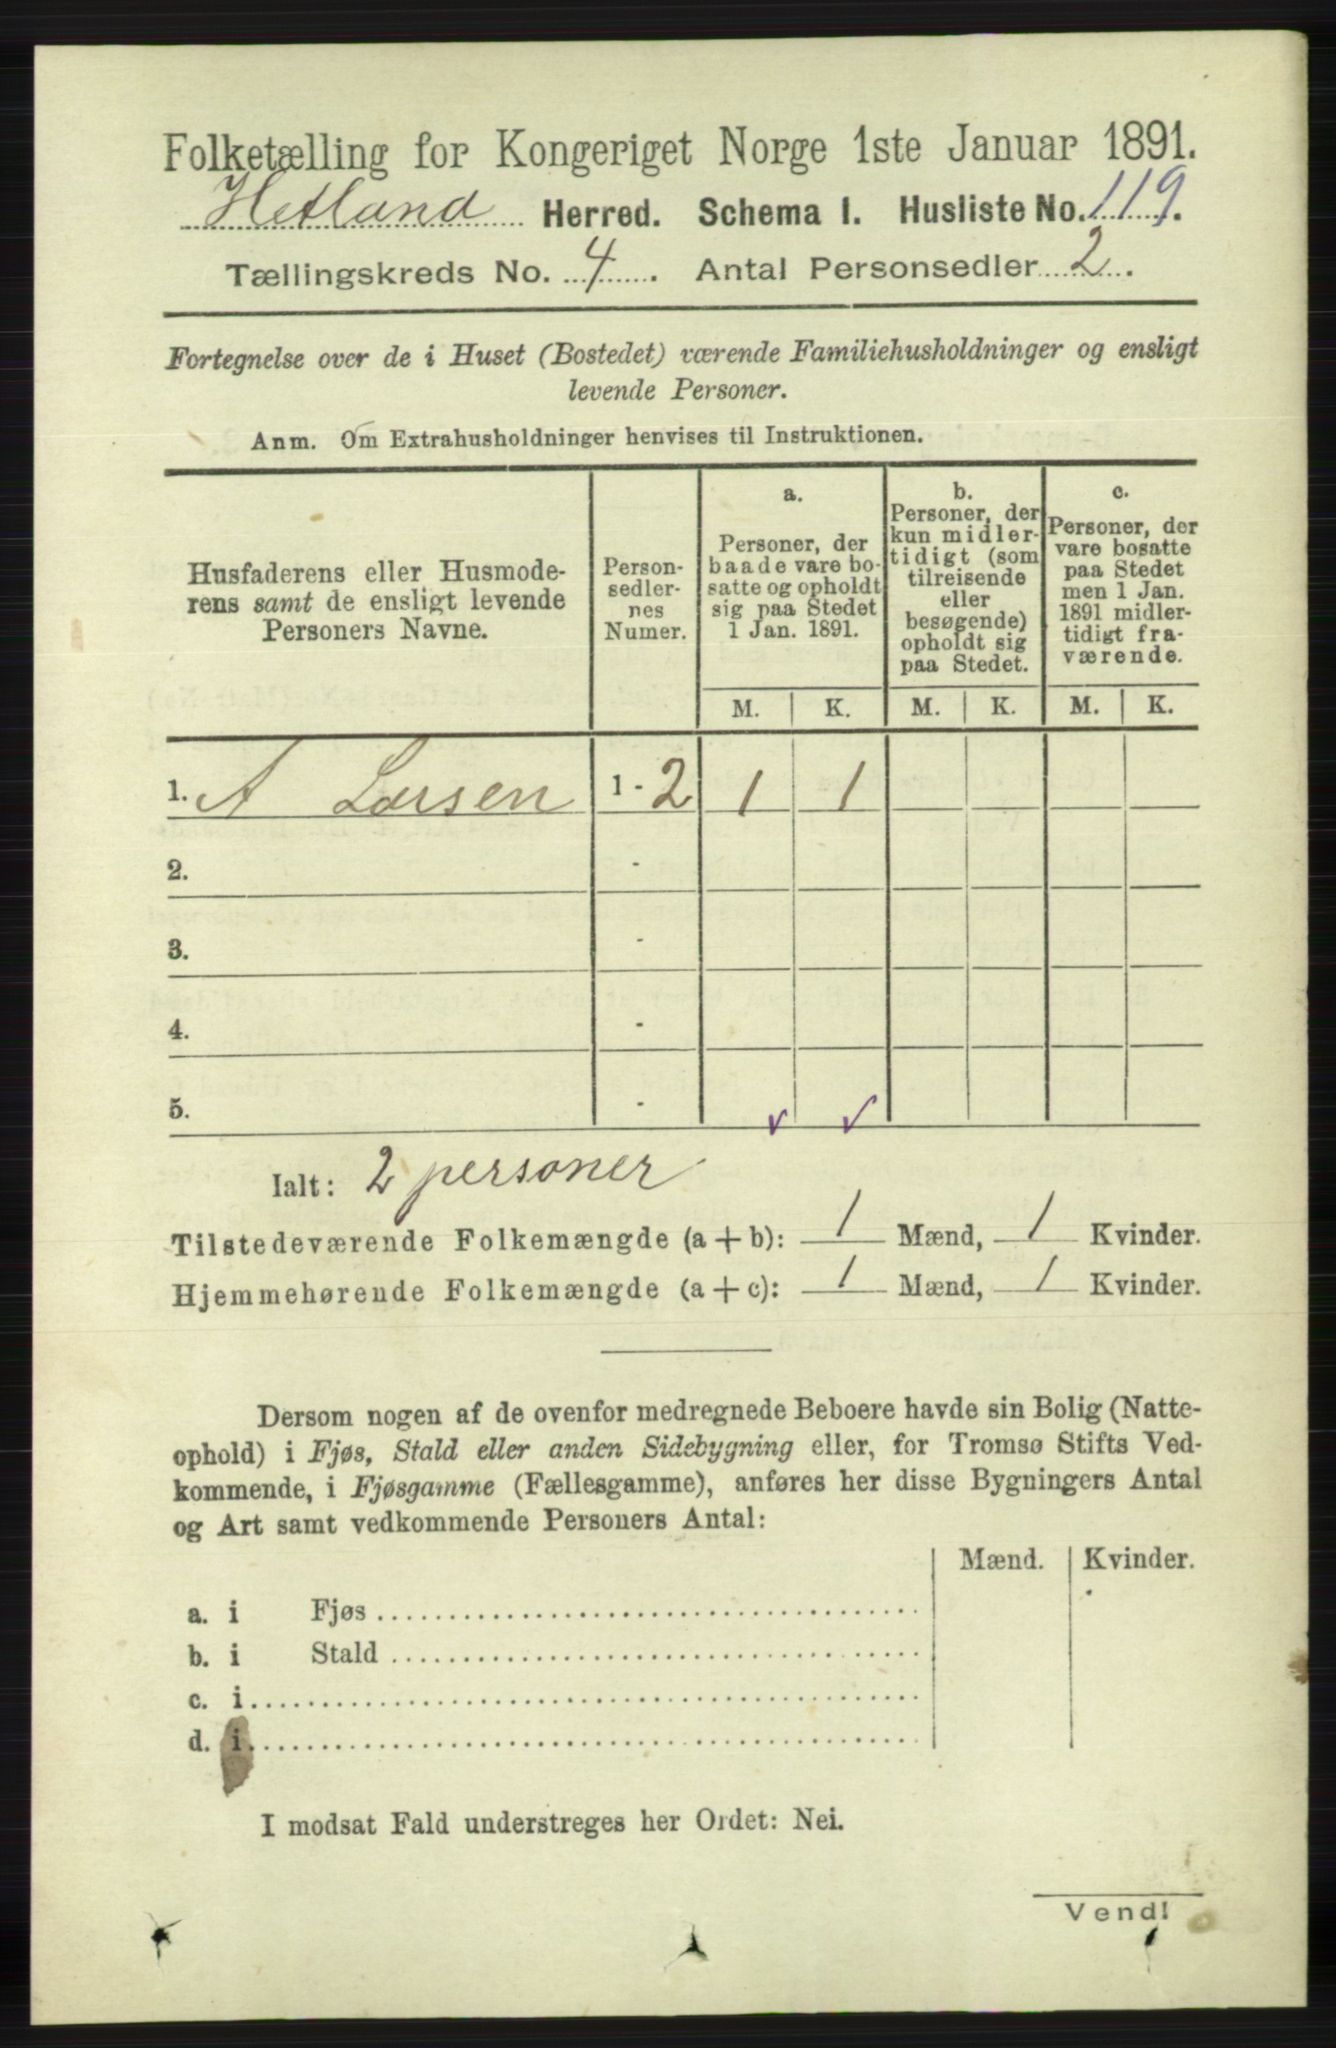 Folketælling for Kongeriget Norge 1ste Januar 1891.
Hetland Herred. Schema I. Husliste No. 119.
Tællingskreds No. 4. Antal Personsedler 2.
Fortegnelse over de i Huset (Bostedet) værende Familiehusholdninger og ensligt
levende Personer.
Anm. Om Extrahusholdninger henvises til Instruktionen.
Husfaderens eller Husmode-
rens samt de ensligt levende
Personers Navne.
Person-
sedler-
nes
Numer.
a.
Personer, der
baade vare bo-
satte og opholdt
sig paa Stedet
1 Jan. 1891.
b.
Personer, der
kun midler-
tidigt (som
tilreisende
eller
besøgende)
opholdt sig
paa Stedet.
c.
Personer, der
vare bosatte
paa Stedet
men 1 Jan.
1891 midler-
tidigt fra-
værende.
M. K. M. K. M. K.
1. A Larsen 1 - 2 1 1
2. -
3. -
4. -
5. -
Ialt: 2 personer
Tilstedeværende Folkemængde (a + b): 1 Mænd, 1 Kvinder.
Hjemmehørende Folkemængde (a + c): 1 Mænd, 1 Kvinder.
Dersom nogen af de ovenfor medregnede Beboere havde sin Bolig (Natte-
ophold) i Fjøs, Stald eller anden Sidebygning eller, for Tromsø Stifts Ved-
kommende, i Fjøsgamme (Fællesgamme), anføres her disse Bygningers Antal
og Art samt vedkommende Personers Antal:
Mænd. Kvinder.
a. i Fjøs
b. i Stald
c. i
d. i
I modsat Fald understreges her Ordet: Nei.
Vend!